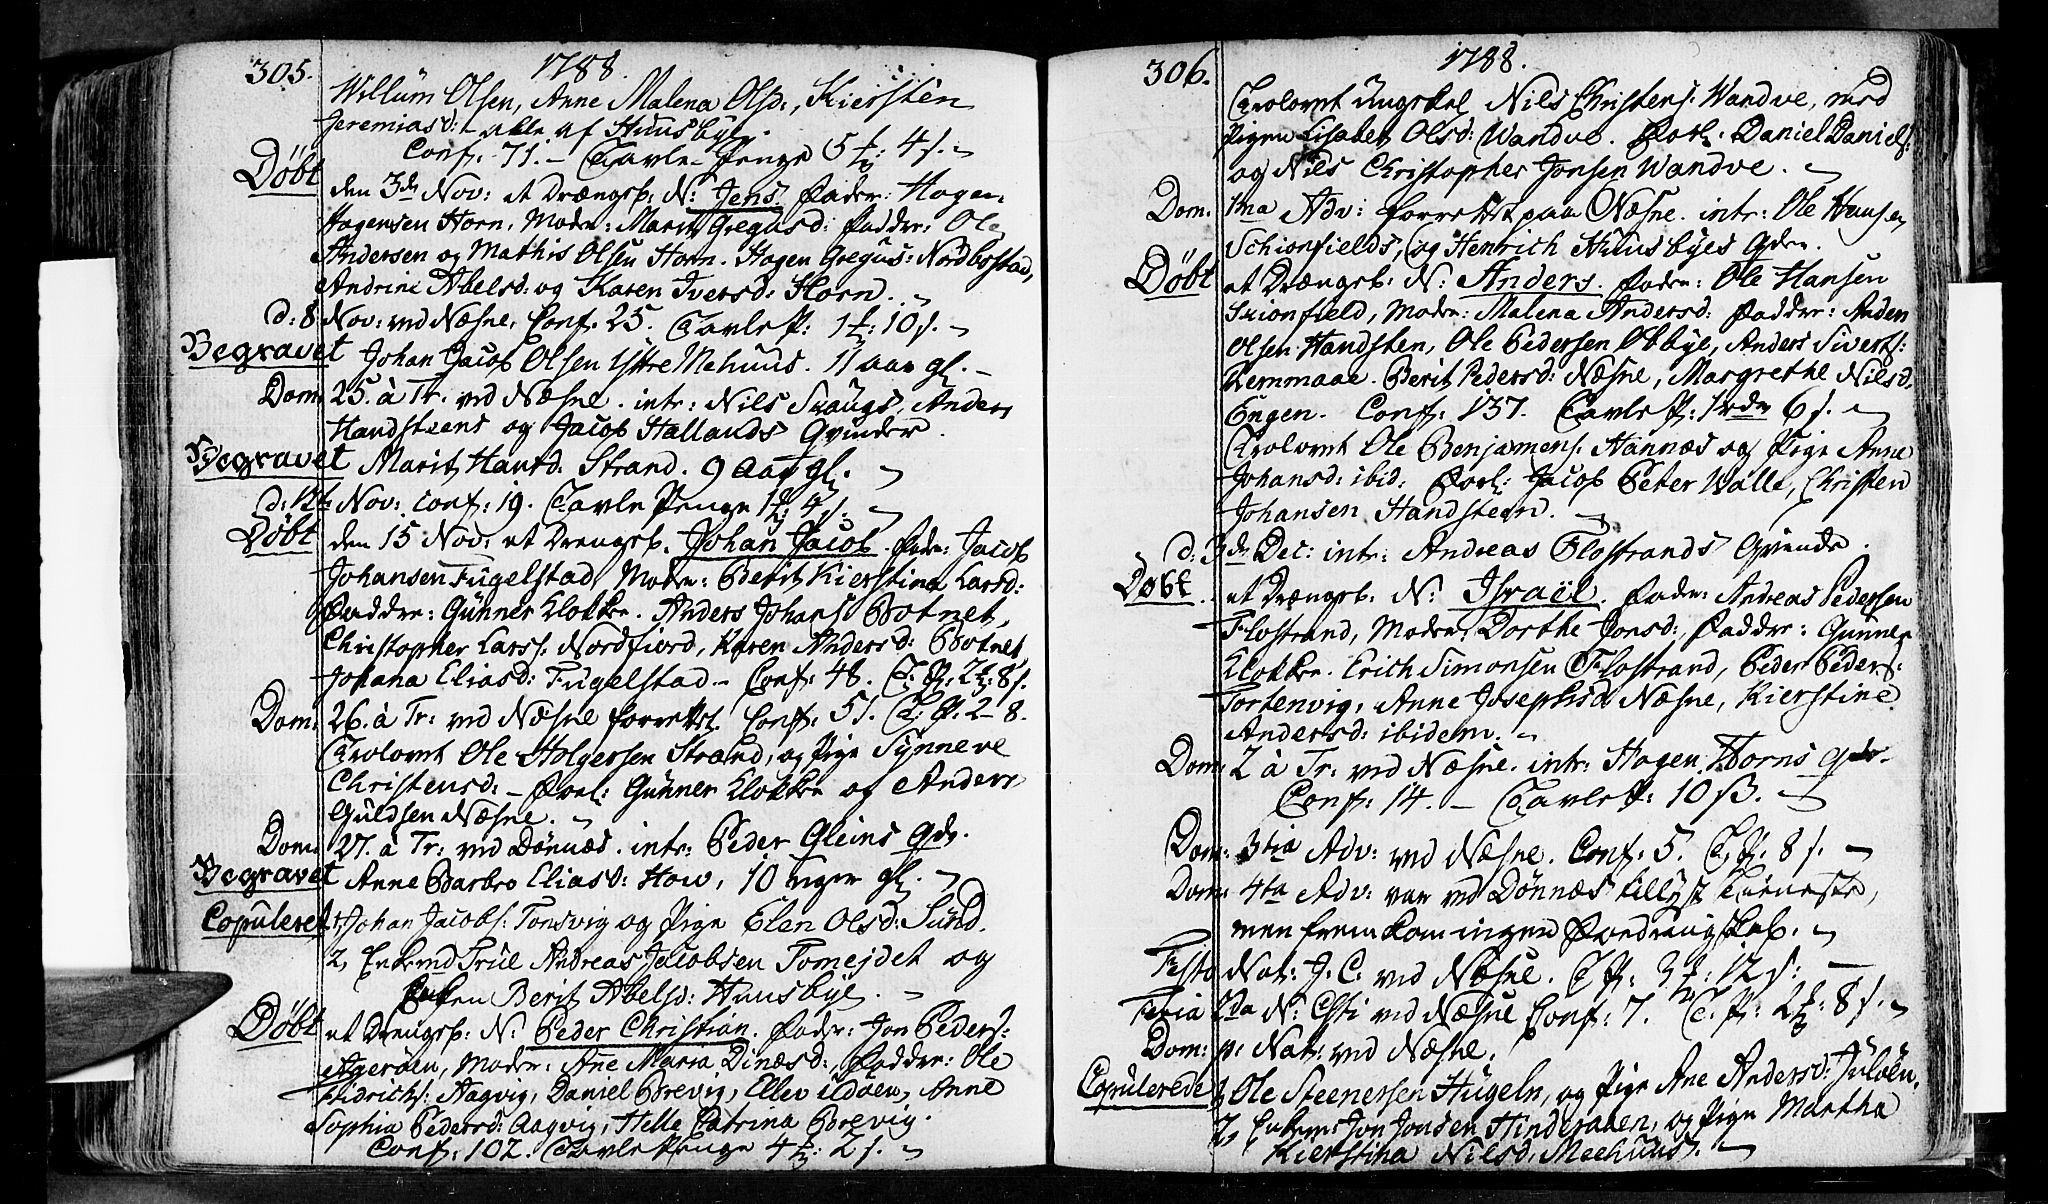 305. 1788.
Willum Olsen, Anne Malena Olsd:, Kiersten
Jeremiasd: – alle af Huusbye.
Conf: 71. – Tavle-Penge 5 ℔: 4 s.
Døbt den 3de Nov: et Drængeb. N: Jens. Fader: Hagen
Hagensen Horn, Moder: Marit Gregusd: Faddr: Ole
Andersen og Mathis Olsen Horn. Hagen Gregus: Nordbostad,
Andrine Abelsd: og Karen Iversd: Horn.
d: 8 Nov: ved Næsne, Conf: 25. Tavle P: 1 ℔: 10 s.
Begravet Johan Jacob Olsen Yttre Mehuus. 11 aar gl.
Dom: 25. à Tr. ved Næsne. intr: Nils Svaugs, Anders
Handsteens og Jacob Hallands Qvinder.
Begravet Marit Hansd: Strand. 9 aar gl.
d: 12te Nov: conf: 19. Tavle Penge 1 ℔: 4 s.
Døbt den 15 Nov: et Drengeb. Johan Jacob. Fader: Jacob
Johansen Fugelstad, Moder: Berit Kierstina Larsd:
Faddre: Gunner Klokker. Anders Johans: Botnet,
Christopher Larss: Nordfiord, Karen Andersd: Botnet,
Johana Eliasd: Fugelstad – Conf: 48. T. P: 2 ℔: 8 s.
Dom: 26. à Tr: ved Næsne forrettet. Conf: 51. T: P. 2 – 8.
Trolovet Ole Holgersen Strand, og Pige Synneve
Christensd: – Forl: Gunner Klokker og Anders
Guldsen Næsne.
Dom: 27. à Tr: ved Dönnes. intr: Peder Gleins Qde.
Begravet Anne Barbro Eliasd: How, 10 uger gl.
Copuleret 1, Johan Jacobs: Tonsvig og Pige Elen Olsd: Sund.
2, Enkemd True Andreas Jacobsen Tomejdet og
Enken Berit Abelsd: Huusbye.
Døbt et Drengeb. N: Peder Christian. Fader: Jon Peders:
Agerøen, Moder: Ane Maria Dinæsd:, Faddre: Ole
Fridrichs: Aagvig, Daniel Brevig, Ellev Udøen, Anne
Sophia Pedersd: Aagvig, Helle Catrina Brevig.
Conf: 102. Tavle Penge 4 ℔: 2 s.
306. 1788.
Trolovet Ungekal Nils Christens: Wandve, med
Pigen Lisabet Olsd: Wandve. Forl: Daniel Daniels:
og Nils Christopher Jonsen Wandve.
Dom: 1ma Adv: forrettet paa Næsne. intr: Ole Hansen
Schionfields, og Henrich Huusbyes Qder.
Døbt et Drængeb: N: Anders. Fader: Ole Hansen
Skionfield, Moder: Malena Andersd: Faddre: Anders
Olsen Handsten, Ole Pedersen Obbye, Anders Siverts:
Remmaae. Berit Pedersd: Næsne, Margrethe Nilsd:
Engen. Conf: 137. Tavle P: 1 rdr 6 s.
Trolovet Ole Benjamens: Hannæs og Pige Anne
Johansd: ibid: Forl: Jacob Peter Walle, Christen
Johansen Handsteen.
d: 3de Dec: intr: Andreas Flostrands Qvinde.
Døbt et Drængeb: N: Israël. Fader: Andreas Pedersen
Flostrand, Moder, Dorthe Jonsd:, Faddre: Gunner
Klokker. Erich Simonsen Flostrand, Peder Peders:
Tortenvig, Anne Josephsd: Næsne, Kierstine
Andersd: ibidem.
Dom: 2 à Tr: ved Næsne. intr: Hagen Horns Qde.
Conf: 14. – Tavle P: 10 ß.
Dom: 3tia Adv: ved Næsne. Conf: 5. T. P: 8 s.
Dom: 4ta Adv: var ved Dönnæs tillyst tieneste,
men fremkom ingen Fordringskab.
Festo Nat: J. C. ved Næsne. T P: 3 ℔: 12 s:
Feria 2da N: Chti ved Næsne Conf: 7. T. P: 2 ℔: 8 s.
Dom: p: Nat: ved Næsne.
Copulerede 1, Ole Steenersen Hugeln, og Pige Ane Andersd: Juløen.
2, Enkem: Jon Jonsen Hinderaaen, og Pige Martha
Kierstina Nilsd: Meehuus.